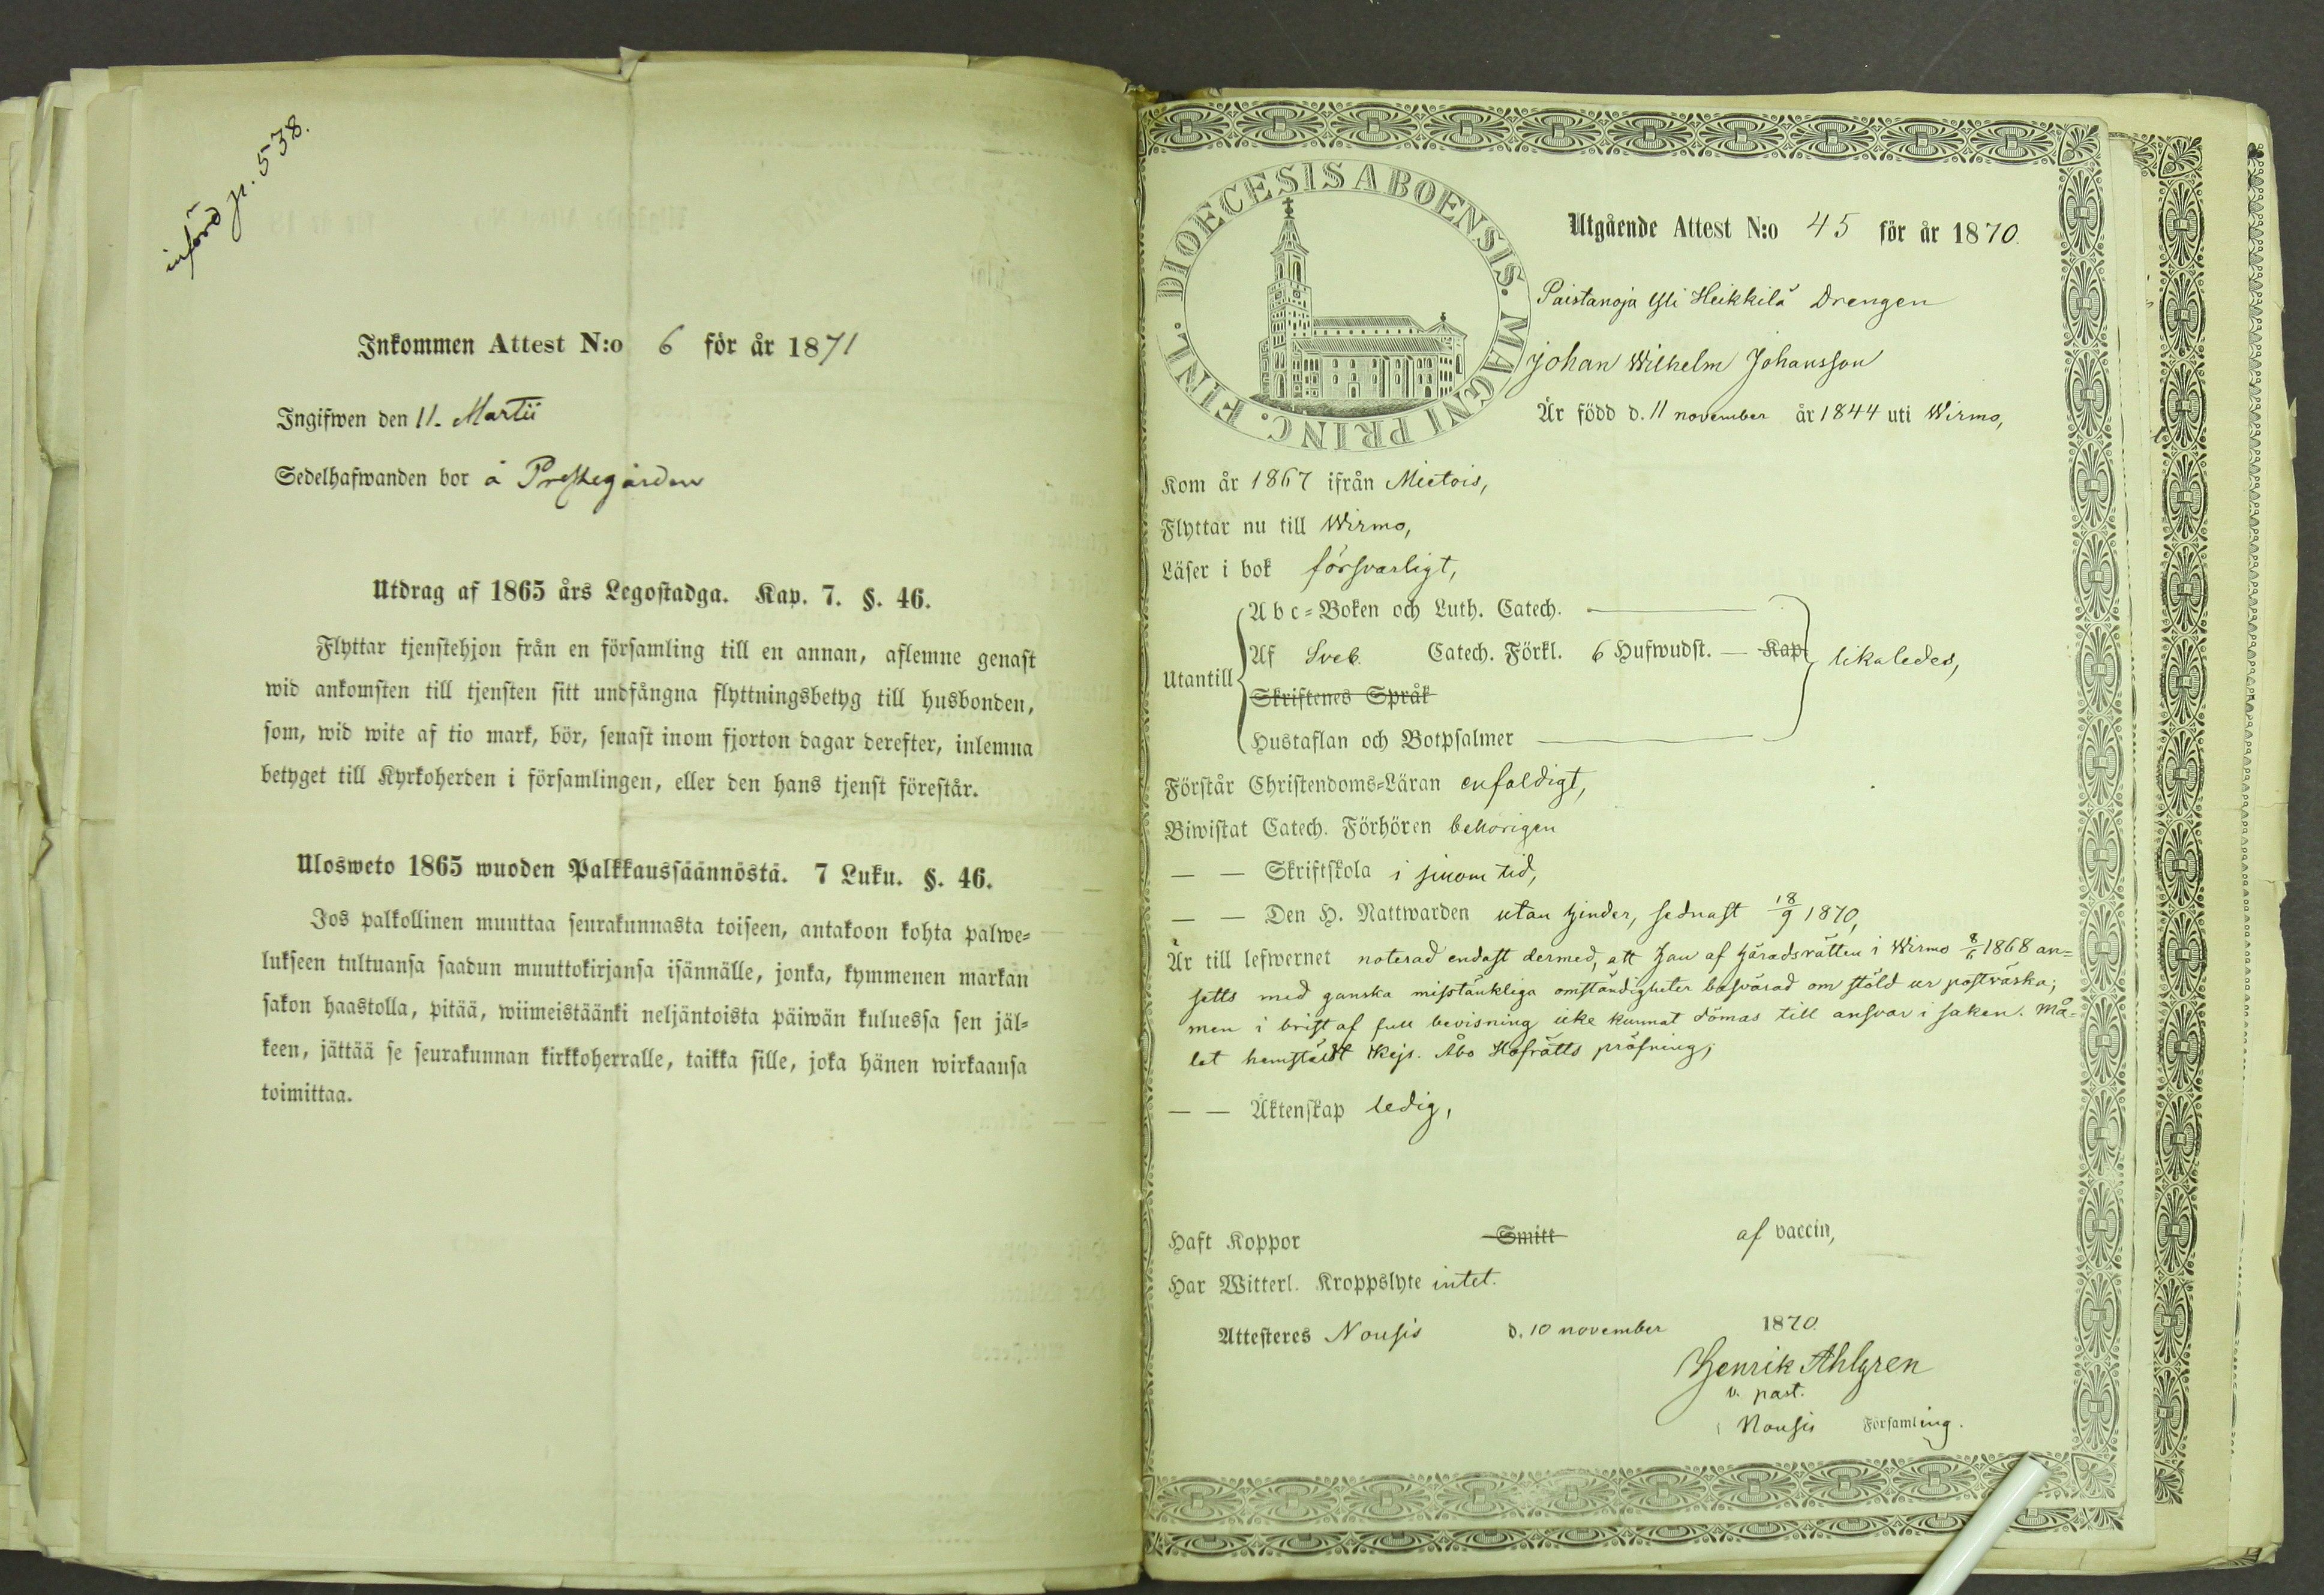 införd p. 538.
Inkommen Attest N:o 6 för år 1871
Ingifwen den 11. Martii
Sedelhafwanden bor å Prestegården
Utdrag af 1865 års Legostadga. Kap. 7. §. 46.
Flyttar tjenstehjon från en församling till en annan, aflemne genast
wid ankomsten till tjensten sitt undfångna flyttningsbetyg till husbonden,
som, wid wite af tio mark, bör, senast inom fjorton dagar derefter, inlemna
betyget till Kyrkoherden i församlingen, eller den hans tjenst förestår.
Ulosweto 1865 wuoden Palkkaussäännöstä. 7 Luku. §. 46.
Jos palkollinen muuttaa seurakunnasta toiseen, antakoon kohta palwe=
lukseen tultuansa saadun muuttokirjansa isännälle, jonka, kymmenen markan
sakon haastolla, pitää, wiimeistäänki neljäntoista päiwän kuluessa sen jäl=
keen, jättää se seurakunnan kirkkoherralle, taikka sille, joka hänen wirkaansa
toimittaa.
FINL. DIOECESIS ABOENSIS. MAGNI PRINC.
Utgående Attest N:o 45 för år 1870.
Paistanoja Yli Heikkilä Drengen
Johan Wilhelm Johansson
Är född d. 11 november år 1844 uti Wirmo,
Kom år 1867 ifrån Mietois,
Flyttar nu till Wirmo,
Läser i bok försvarligt,
Abc=Boken och Luth. Catech.
Utantill Af Sveb. Catech. Förkl. 6 Hufwudst. — Kap. likaledes,
Skriftenes Språk
Hustaflan och Botpsalmer
Förstår Christendoms=Läran enfaldigt,
Biwistat Catech. Förhören behörigen
— — Skriftskola i sinom tid,
— — Den H. Nattwarden utan hinder, sednast 18/9 1870,
Är till lefwernet noterad endast dermed, att han af häradsrätten i Wirmo 8/6 1868 an=
setts med ganska misstänkliga omständigheter besvärad om stöld ur postväska;
men i brist af full bevisning icke kunnat dömas till ansvar i saken. Må=
let hemstäldt Kejs. Åbo Hofrätts pröfning;
— — Äktenskap ledig,
Haft Koppor Smitt af vaccin,
Har Witterl. Kroppslyte intet.
Attesteres Nousis d. 10 november 1870.
Henrik Ahlgren
v. past.
i Nousis Församling.